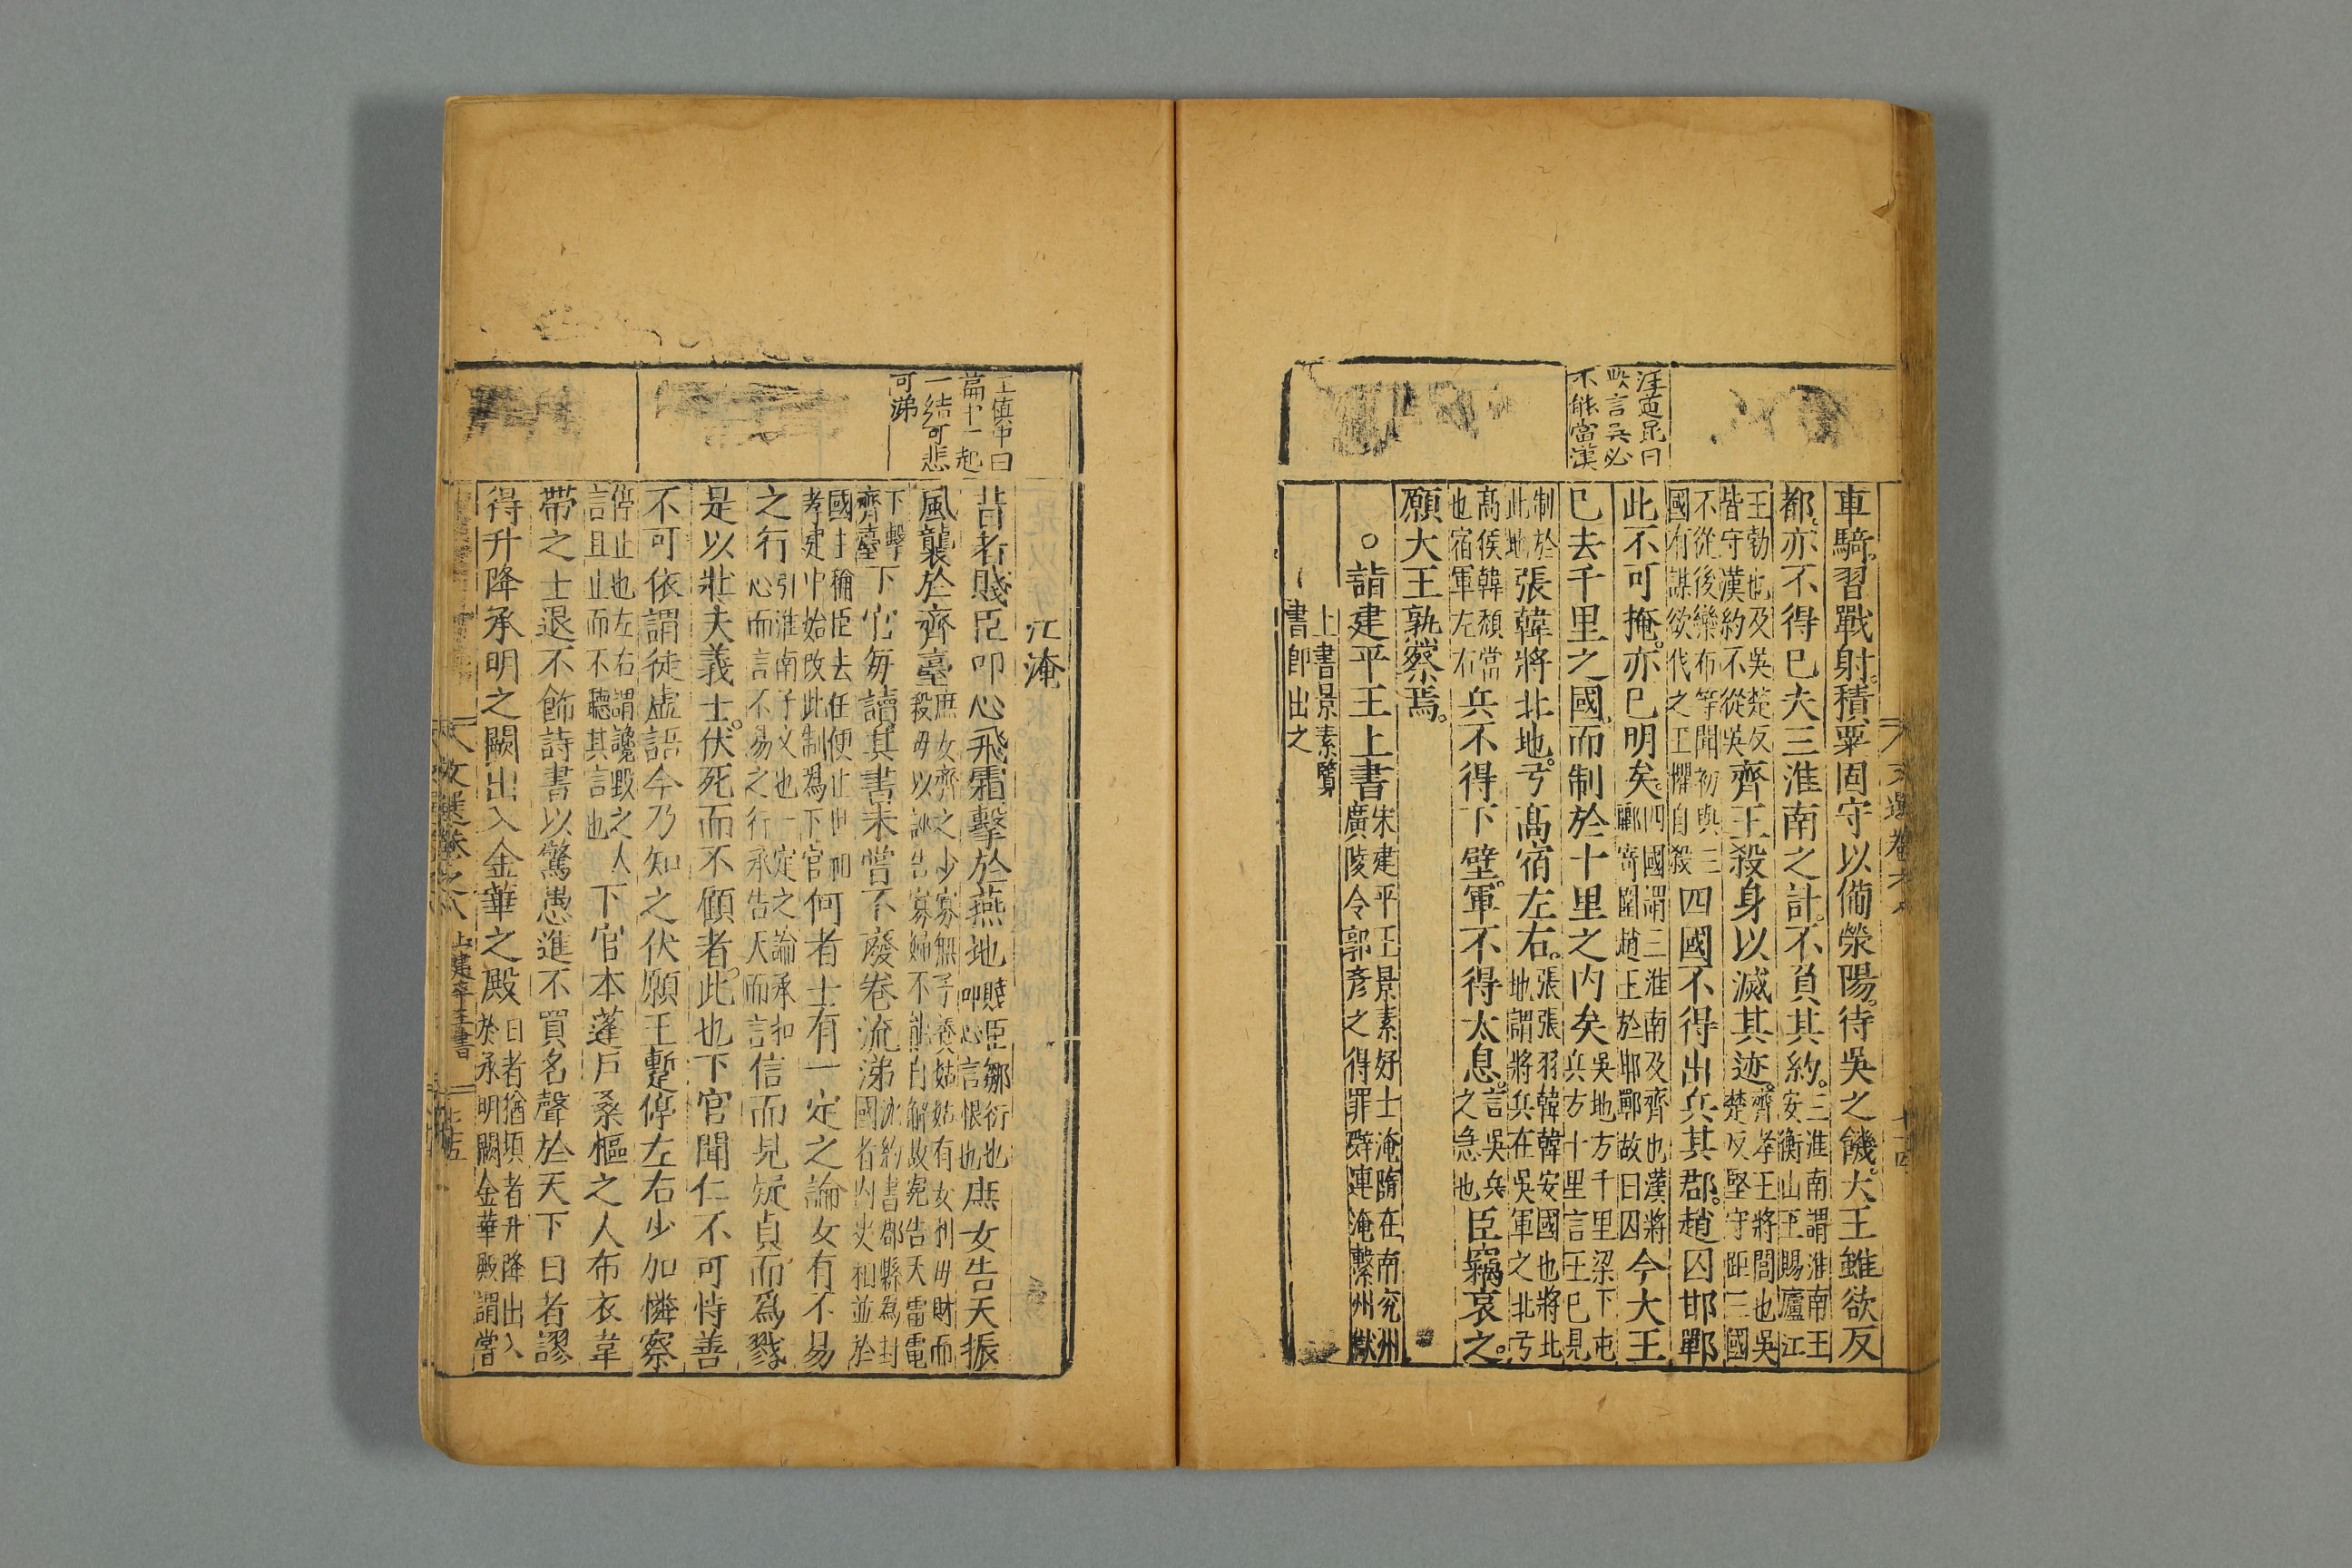 汪道昆曰
此言吳必
不能當漢
車騎習戰射。積粟固守以備滎陽。待吳之饑。大王雖欲反
都。亦不得已夫三淮南之計。不負其約。三淮南謂淮南王
安衡山王賜廬江
王勃也及吳楚反
皆守漢約不從吳齊王殺身以滅其迹。齊孝王將閭也吳
楚反堅守距三國
不從後欒布等聞初與三
國有謀欲伐之王懼自殺四國不得出兵其郡。趙囚邯鄲
此不可掩。亦已明矣。四國謂三淮南及齊也漢將
酈寄圍趙王於邯鄲故曰囚今大王
已去千里之國。而制於十里之内矣吳地方千里梁下屯
兵方十里言王已見
制於
此地張韓將北地。弓高宿左右。張張羽韓韓安國也將北
地謂將兵在吳軍之北弓
高侯韓頹當
也宿軍左右兵不得下壁。軍不得太息。言吳兵
之急也臣竊哀之。
願大王孰察焉。
○詣建平王上書宋建平王景素好士淹隨在南兖州
廣陵令郭彥之得罪辭連淹繫州獄
上書景素覽
書即出之
文選卷之八
十四
王慎中曰
篇中一起
一結可悲
可涕
江淹
昔者賤臣叩心飛霜擊於燕地賤臣鄒衍也
叩心言恨也庶女告天振
風襲於齊臺庶女齊之少寡無子養姑姑有女利母財而
殺母以誣告寡婦不能自解故寃告天雷電
下擊
齊臺下官每讀其書未嘗不廢卷流涕沈約書郡縣為封
國者内史相並於
國主稱臣去任便止世祖
孝建中始改此制爲下官何者士有一定之論女有不易
之行引淮南子文也一定之論承扣
心而言不易之行承告天而言信而見疑貞而爲戮。
是以壯夫義士。伏死而不顧者。此也下官聞仁不可恃善
不可依謂徒虛語今乃知之伏願王暫停左右少加憐察
停止也左右謂讒毀之人
言且止而不聽其言也下官本蓬戶桑樞之人布衣韋
帶之士退不飾詩書以驚愚進不買名聲於天下日者謬
得升降承明之闕出入金華之殿日者猶頃者升降出入
於承明闕金華殿謂嘗
文選卷之八
上建平王書
十五